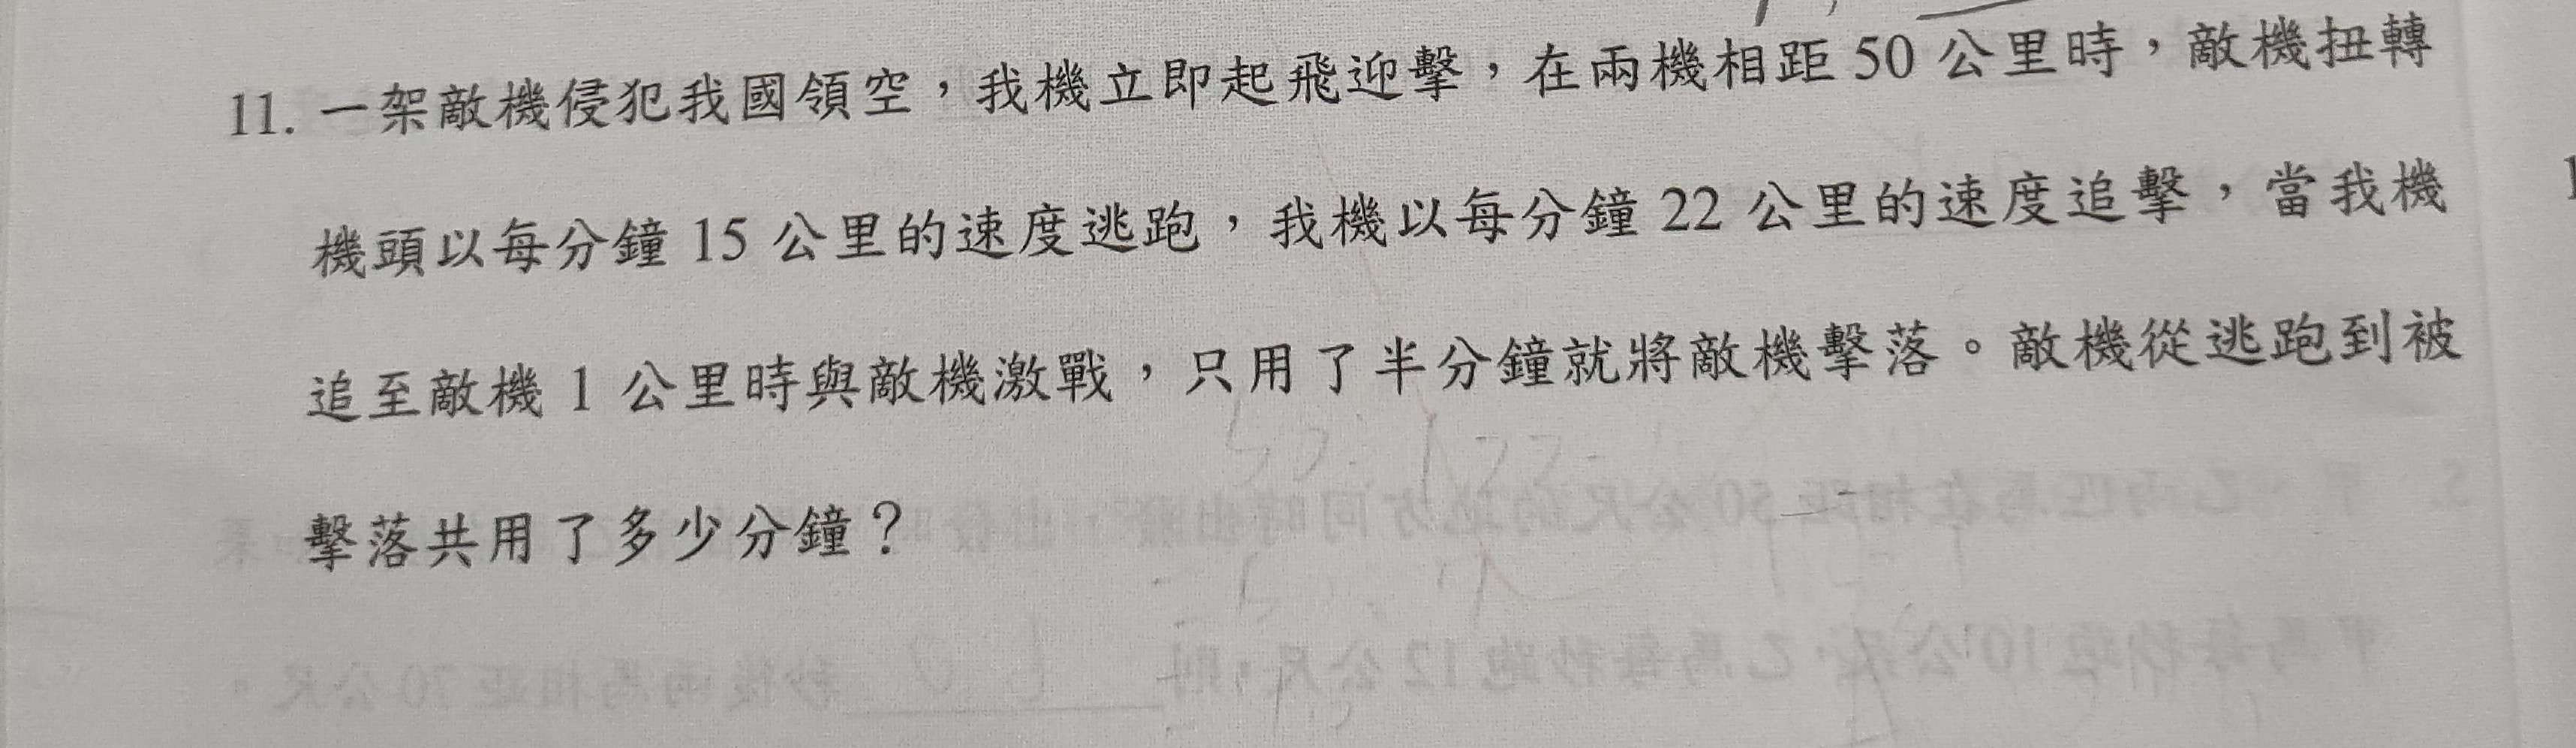 11. 一架敵機侵犯我國領空，我機立即起飛迎擊，在兩機相距 50 公里時，敵機扭轉
機頭以每分鐘 15 公里的速度逃跑，我機以每分鐘 22 公里的速度追擊，當我機
追至敵機 1 公里時與敵機激戰，只用了半分鐘就將敵機擊落。敵機從逃跑到被
擊落共用了多少分鐘？